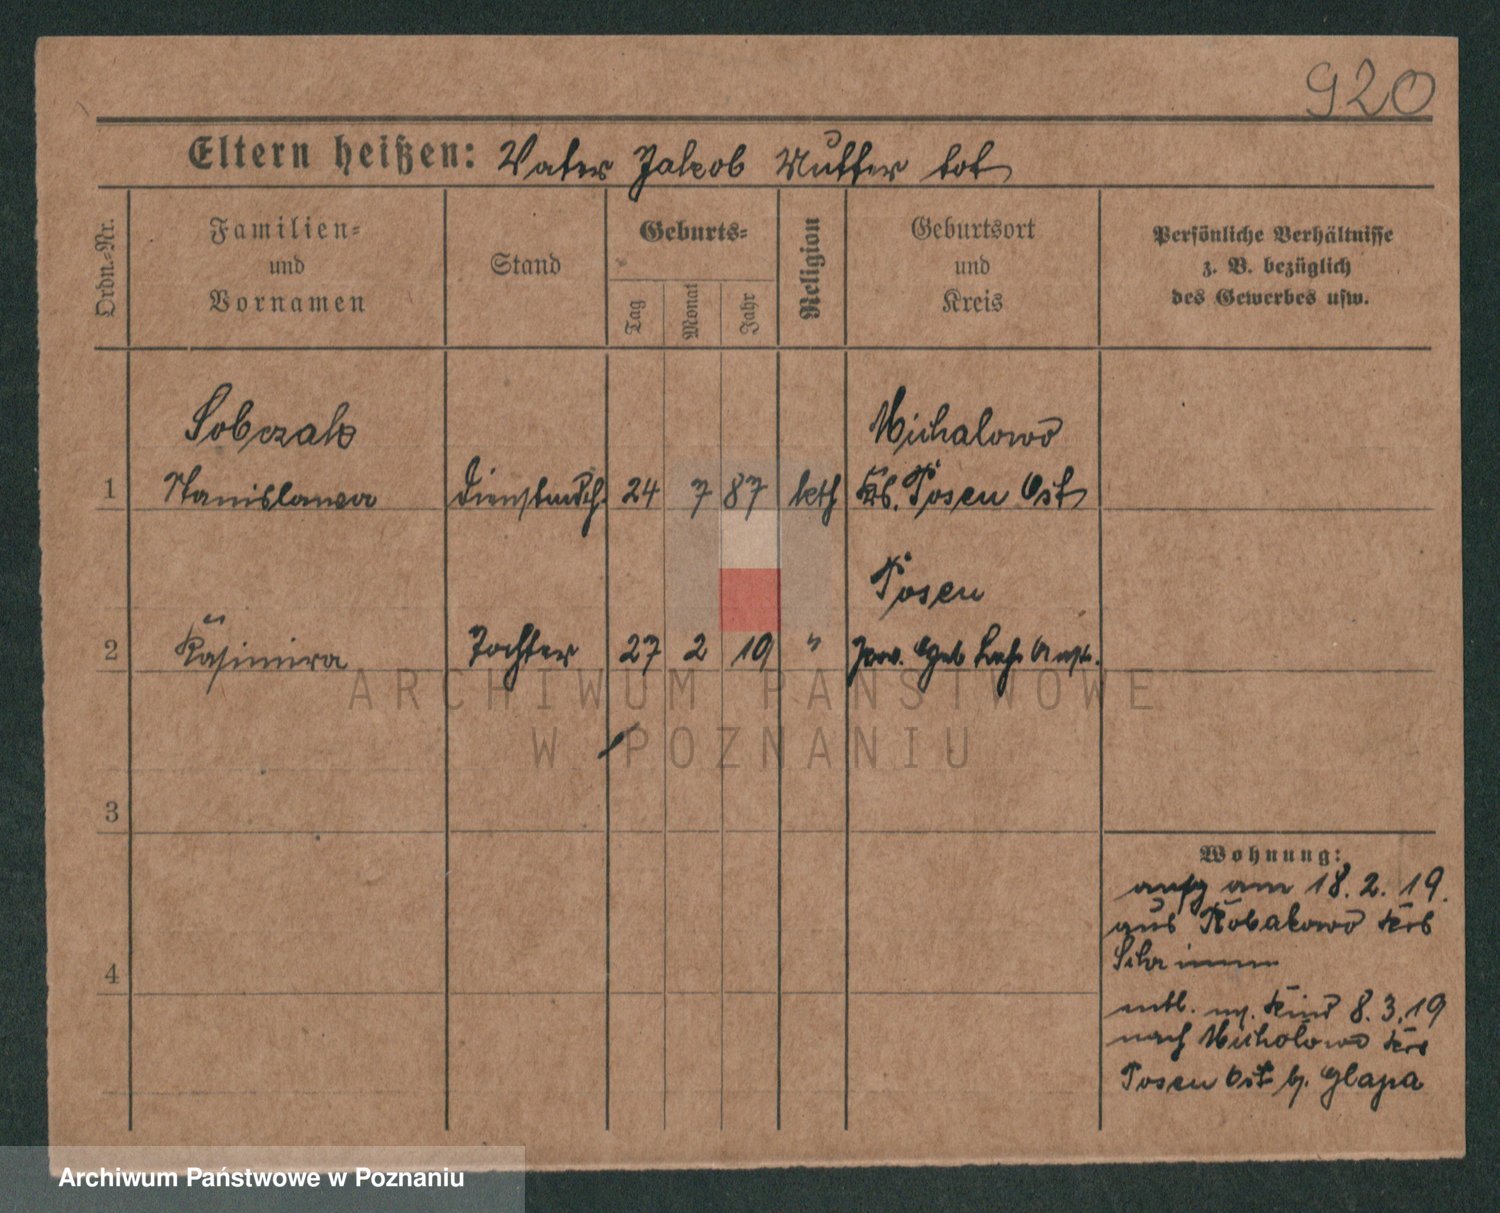 920
Eltern heißen: Vater Jakob Mutter tot
Ordn.-Nr.
Familien-
und
Vornamen
Stand
Geburts-
Tag
Monat
Jahr
Religion
Geburtsort
und
Kreis
Persönliche Verhältnisse
z. B. bezüglich
des Gewerbes usw.
Sobczak
Michalowo
1 Stanislawa Dienstmdch. 24 7 87 kth Krs. Posen Ost
Posen
2 Kasimira Tochter 27 2 19 "
ARCHIWUM PAŃSTWOWE
W POZNANIU
3
Wohnung:
aufg am 18.2.19.
aus Robakowo Krs
Schrimm
4
entl. m. Kind 8.3.19
nach Michalowo Krs
Posen Ost b. Glapa
Archiwum Państwowe w Poznaniu